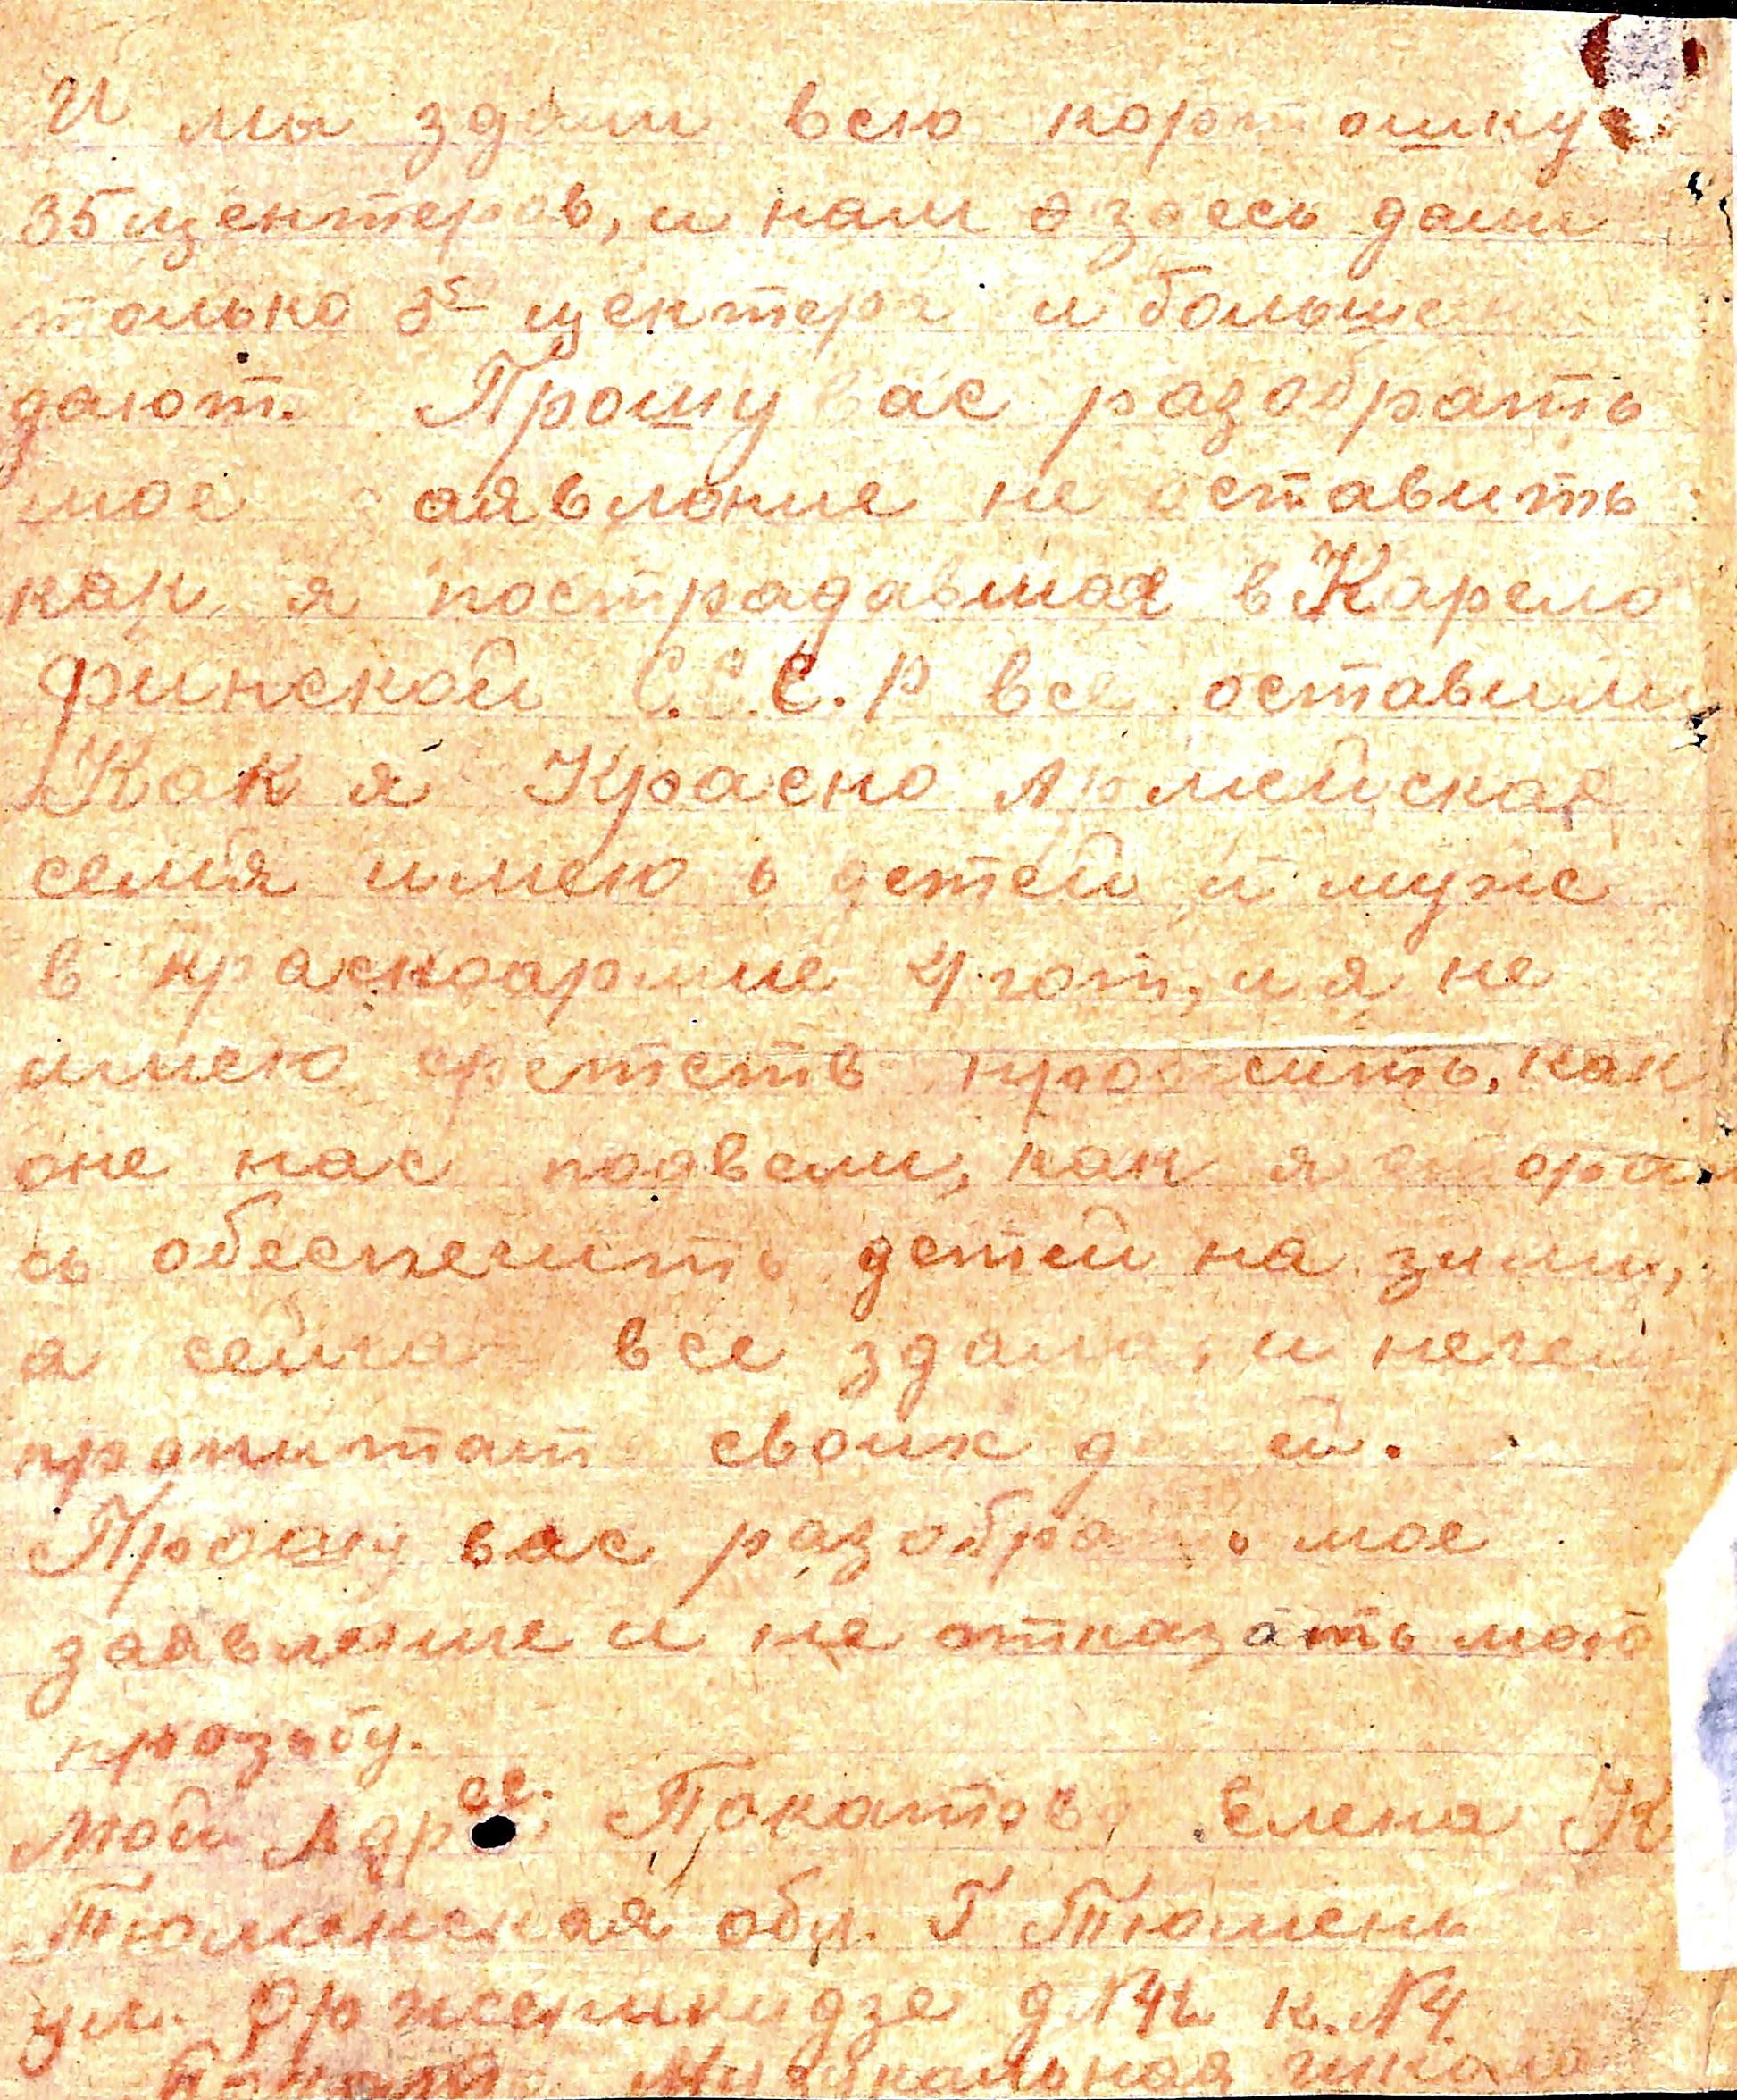 И мы здали всю картошку
35 центеров, и нам здесь дали
только 5 центера и больше не
дают. Прошу вас разобрать
мое заявление не оставить
как я пострадавшая в Карело
финской С.С.С.Р все оставили
Как я Красно Армейская
семя имею 6 детей и муже
в красноармие 4 гот, и я не
имею сретств прожить, как
оне нас подвели, как я старала
сь обеспечить детей на зиму,
а сейчас все здала, и нечем
пропитат своих детей.
Прошу вас разобрать мое
заявление и не отказать мою
прозьбу.
Мой Адрес. Покатова Елена К
Тюменская обл. Г Тюмень
ул. Орженикидзе д №42 к. №4
Музукальная школа